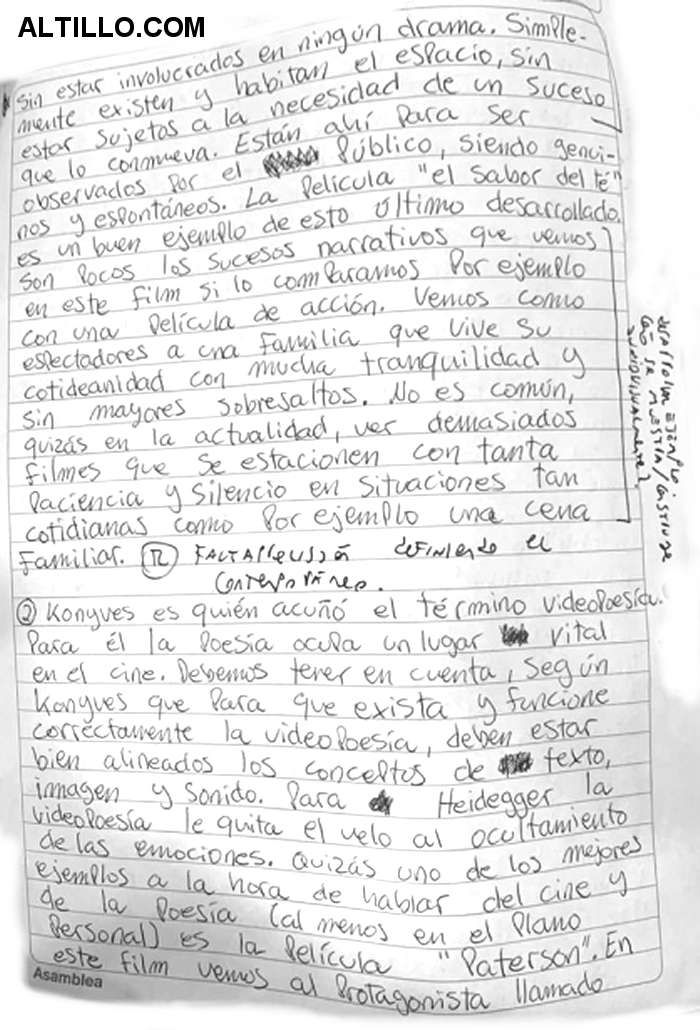 ALTILLO.COM
Sin estar involucrados en ningún drama. Simple-
mente existen y habitan el espacio, sin
estar sujetos a la necesidad de un suceso
que lo conmueva. Están ahí para ser
observados por el público, siendo genui-
nos y espontáneos. La película "el sabor del té"
es un buen ejemplo de esto último desarrollado.
Son pocos los sucesos narrativos que vemos
en este film si lo comparamos por ejemplo
con una película de acción. Vemos como
espectadores a una familia que vive su
cotideanidad con mucha tranquilidad y
sin mayores sobresaltos. No es común,
quizás en la actualidad, ver demasiados
filmes que se estacionen con tanta
paciencia y silencio en situaciones tan
cotidianas como por ejemplo una cena
familiar. definiendo el
contemporáneo.
② Konyves es quién acuñó el término videopoesía.
Para él la poesía ocupa un lugar vital
en el cine. Debemos tener en cuenta, según
Konyves que para que exista y funcione
correctamente la videopoesía, deben estar
bien alineados los conceptos de texto,
imagen y sonido. Para Heidegger la
videopoesía le quita el velo al ocultamiento
de las emociones. Quizás uno de los mejores
ejemplos a la hora de hablar del cine y
de la poesía (al menos en el plano
personal) es la película "Paterson". En
este film vemos al protagonista llamado
Asamblea